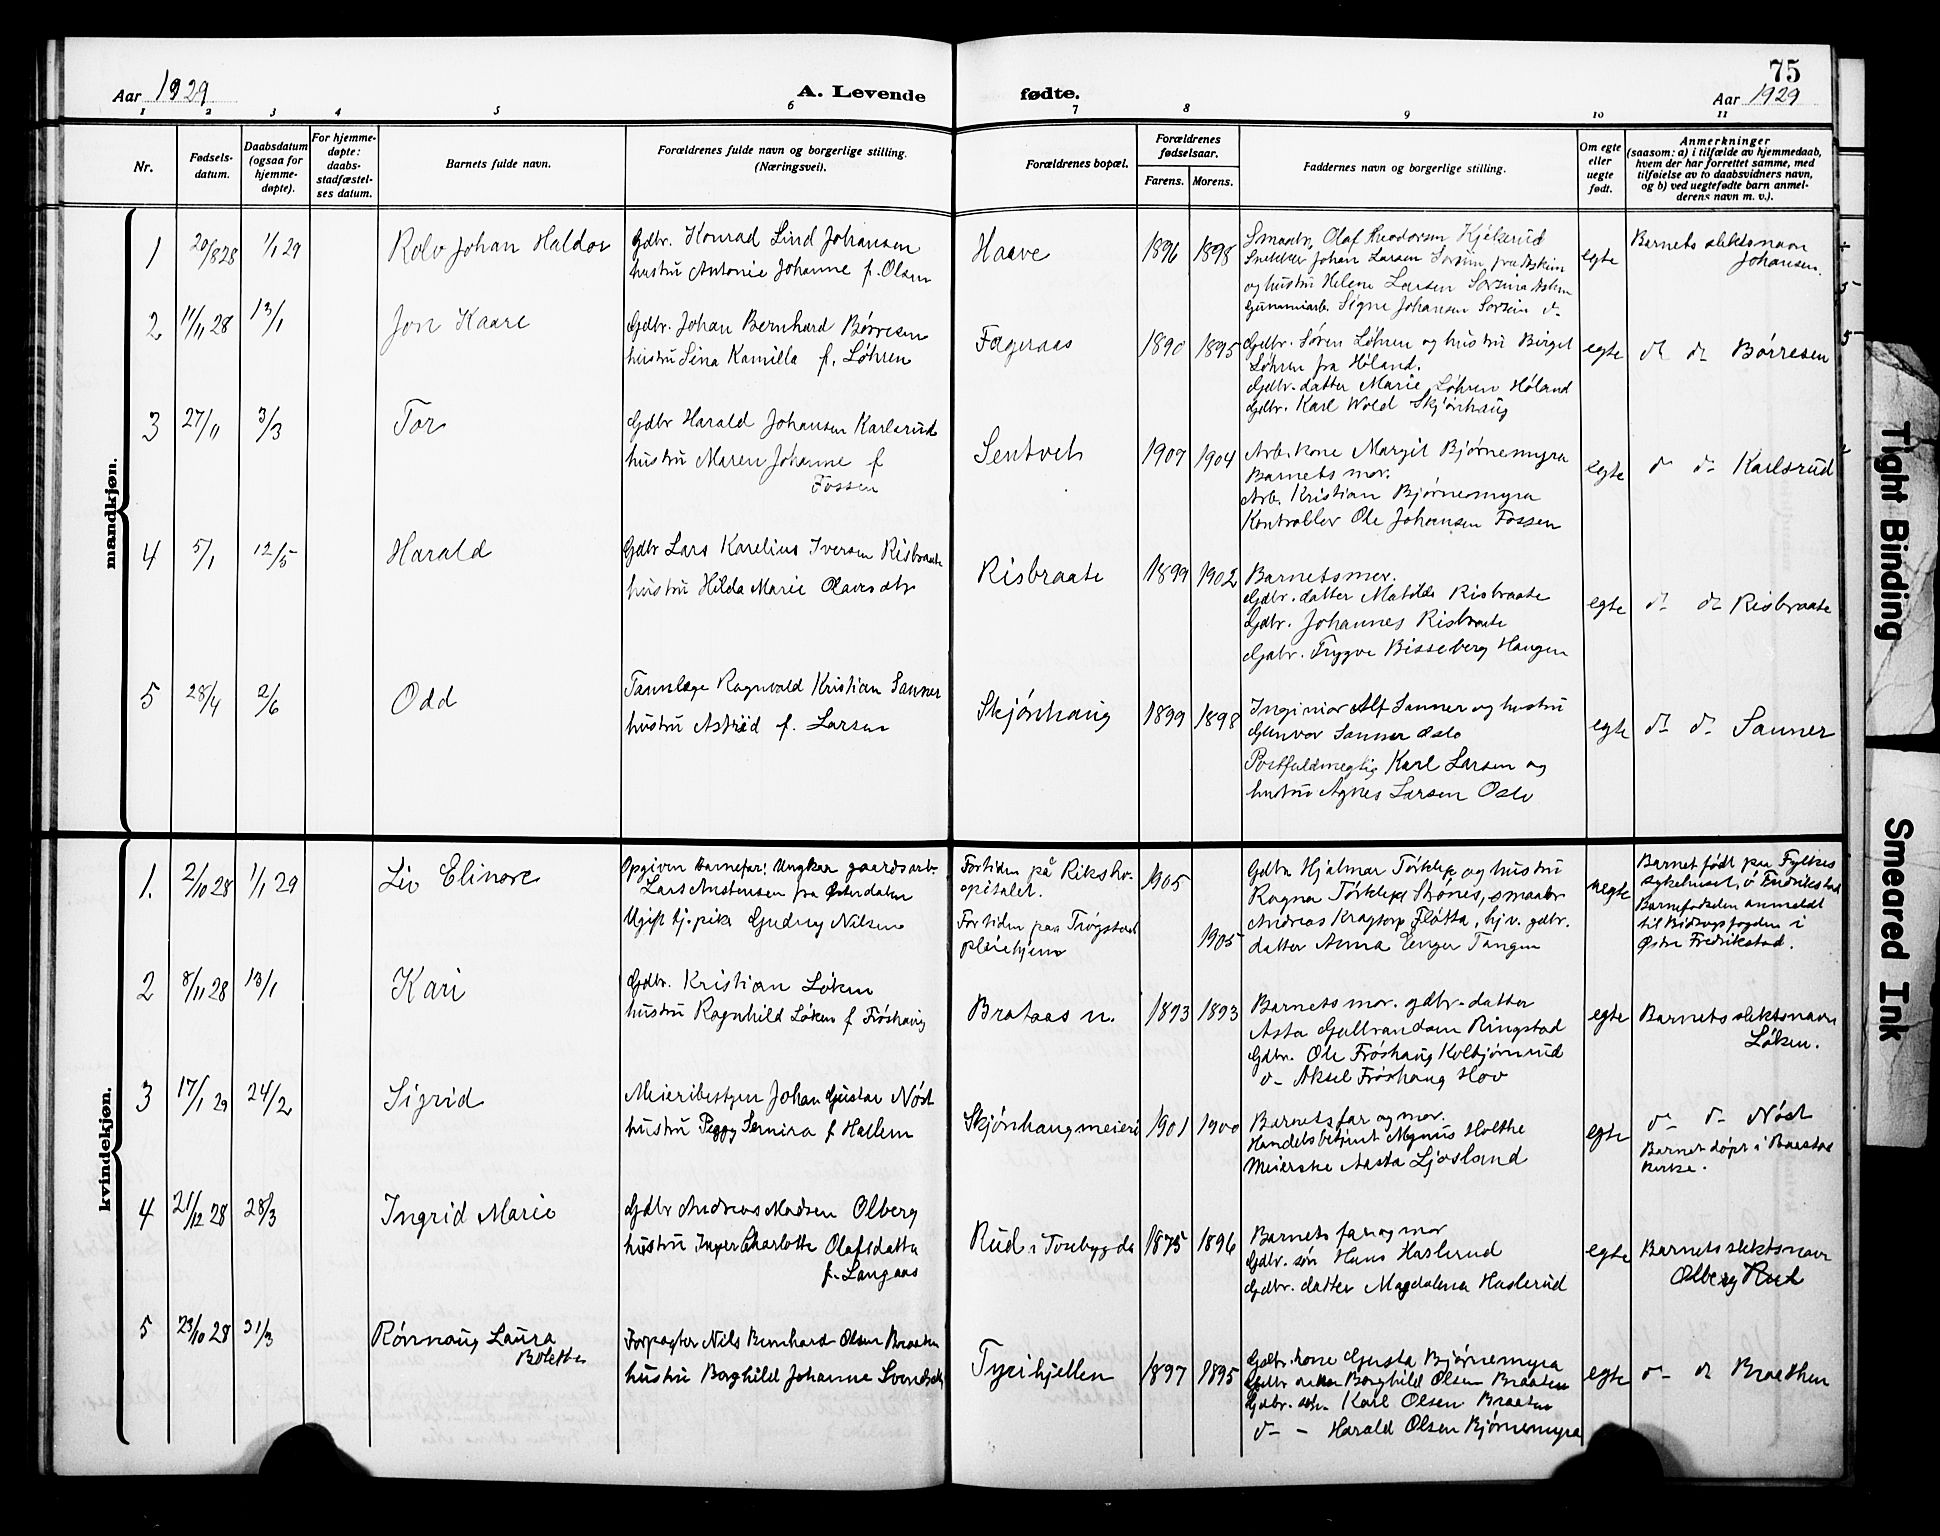 Aar 1929
A. Levende
fødte.
75
Aar 1929
1 2 3 4 5 6 7 8 9 10 11
Nr.
Fødsels-
datum.
Daabsdatum
(ogsaa for
hjemme-
døpte).
For hjemme-
døpte:
daabs-
stadfæstel-
ses datum.
Barnets fulde navn.
Forældrenes fulde navn og borgerlige stilling.
(Næringsvei).
Forældrenes bopæl.
Forældrenes
fødselsaar.
Farens. Morens.
Faddernes navn og borgerlige stilling.
Om egte
eller
uegte
født.
Anmerkninger
(saasom: a) i tilfælde av hjemmedaab,
hvem der har forrettet samme, med
tilføielse av to daabsvidners navn,
og b) ved uegtefødte barn anmel-
derens navn m. v.).
mandkjøn.
1 20/8 28 1/1 29 Rolv Johan Haldor
Gdbr. Konrad Lind Johansen
hustru Antonie Johanne f. Olsen
Haave 1896 1898
Smaabr. Olaf Theodorsen Kjelsrud
Snekker Johan Larsen fra Askim
og hustru Helene Larsen
Gummiarb. Signe Johansen
egte
Barnets slektsnavn
Johansen.
2 17/11 28 13/1 Jon Kaare
Gdbr. Johan Bernhard Børresen
hustru Sina Kamilla f. Løhren
Fageraas 1890 1895
Gdbr. Søren Løhren og hustru Birgit
Løhren fra Høland.
Gdbr. datter Marie Løhren Høland
Gdbr. Karl Wold Skjønhaug
egte
d d Børresen
3 27/11 3/3 Tor
Gdbr Harald Johansen Karlsrud
hustru Maren Johanne f
Fossen
Sentvet 1907 1904
Arb. kone Margit Bjørnemyra
Barnets mor.
Arb. Kristian Bjørnemyra
Kontrollør Ole Johansen Fossen
egte
d d Karlsrud
4 5/1 12/5 Harald
Gdbr Lars Karelius Iversen Risbraate
hustru Hilda Marie Olavsdtr
Risbraate 1899 1902
Barnets mor.
Gdbr. datter Matilde Risbraate
Gdbr. Johannes Risbraate
Gdbr. Trygve Bisseberg Haugen
egte
d d Risbraate
5 28/4 2/6 Odd
Tannlæge Ragnvald Kristian Sanner
hustru Astrid f. Larsen
Skjønhaug 1899 1898
Inginiør Alf Sanner og hustru
Gunvor Sanner Oslo
Postfuldmegtig Karl Larsen og
hustru Agnes Larsen Oslo
egte
d d Sanner
kvindekjøn.
1. 2/10 28 1/1 29 Liv Elinore
Opgiven Barnefar: Ungkar gaardsarb.
Lars Anstensen fra Østerdalen
Ugift tj. pike Gudny Nilsen
Fortiden på Riksho-
spitalet.
Fortiden paa Trøgstad
pleiehjem
1905
1905
Gdbr. Hjalmar Torkleps og hustru
Ragna Torkleps Strønes, smaabr.
Andreas Kragtorp Fløtta, hj. v. gdbr.
datter Anna Enger Tangen
uegte
Barnet født paa Fylkes
sykehuset, i Fredrikstad
Barnefaderen anmeldt
til Bidragsfogden i
Østre Fredrikstad.
2 8/11 28 13/1 Kari
Gdbr. Kristian Løken
hustru Ragnhild Løken f Frøshaug
Brataas n. 1893 1893
Barnets mor. gdbr. datter
Asta Gulbrandsen Ringstad
Gdbr. Ole Frøshaug Kolbjørnrud
d- Aksel Frøshaug Hov
egte
Barnets slektsnavn
Løken.
3 17/1 29 24/2 Sigrid
Meieribestyrer Johan Gustav Nøst
hustru Peggy f Hallem
Skjønhaug meieri 1901 1900
Barnets far og mor.
Handelsbetjent Magnus Holthe
Meierske Aasta Ljosland
egte
d- d- Nøst
Barnet døpt i Baastad
kirke.
4 21/12 28 28/3 Ingrid Marie
Gdbr Andreas Madsen Olberg
hustru Inger Charlotte Olafsdatter
f. Langaas
Rud i Tosebygda 1875 1896
Barnets far og mor
Gdbr. søn Hans Haslerud
Gdbr. datter Magdalena Haslerud
egte
Barnets slektsnavn
Olberg Rud
5 23/10 28 31/3 Rønnaug Laura
Bolette
Forpagter Nils Bernhard Olsen Braaten
hustru Borghild Johanne Svendsdtr
Tyrihjellen 1897 1895
Gdbr. kone Gusta Bjørnemyra
Gdbr datter Borghild Olsen Braaten
Gdbr. søn Karl Olsen Braaten
d- - Harald Olsen Bjørnemyra
egte
d- d Braathen
Tight Binding
Smeared Ink